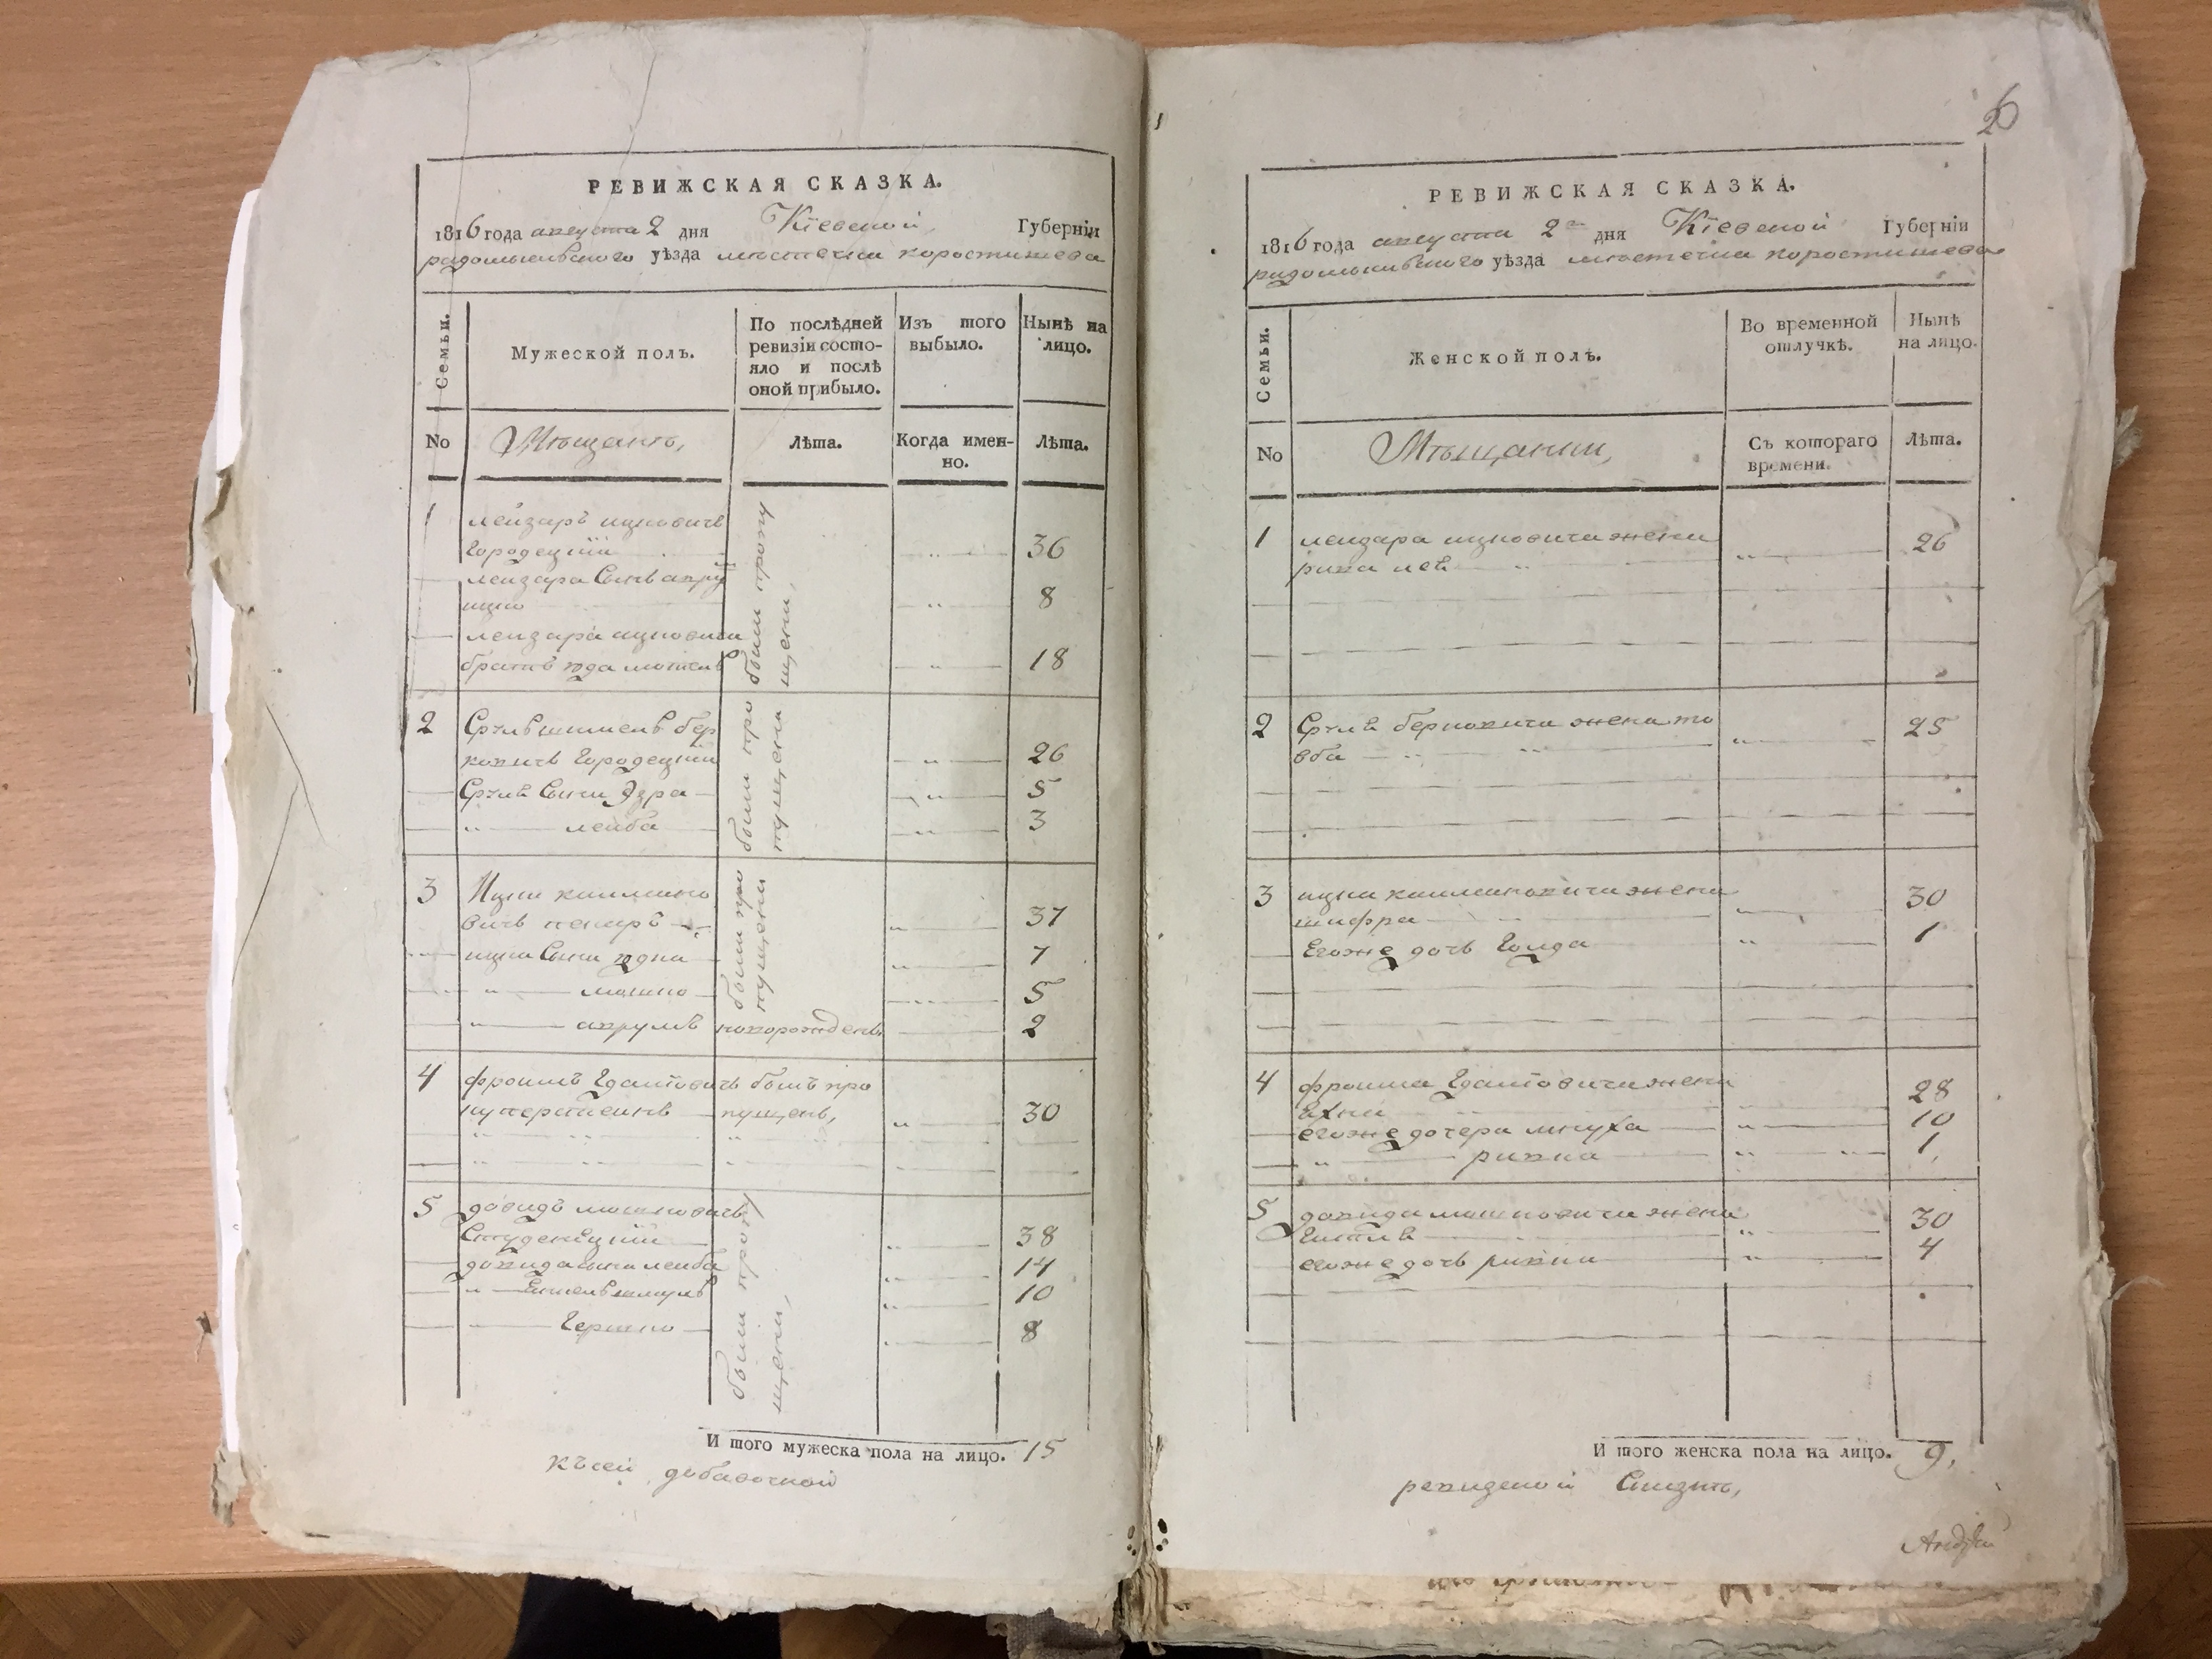 РЕВИЖСКАЯ СКАЗКА.
1816 года августа 2 дня Кіевской Губерніи
радомысльского уѣзда местечка коростишева
Семьи.
Мужеской полъ.
По послѣдней ревизіи состояло и послѣ оной прибыло.
Изъ того выбыло.
Нынѣ на лицо.
No
Мѣщанъ,
Лѣта.
Когда именно.
Лѣта.
1 лейзаръ ицковичъ
Городецкій 36
лейзара Сынъ
ицко 8
лейзара ицковича
братъ 18
были пропущены,
2 Сруль бер
ковичъ Городецкій 26
Сруля Сыны Эзра 5
лейба 3
были пропущены
3 Ицка калмано
вичъ 37
ицка Сыны юдка 7
мошко 5
аврумъ новорожденъ 2
были пропущены
4 фроимъ былъ про
пущенъ, 30
5 довидъ мошковичъ
Студенецкій 38
давида сыны лейба 14
10
Гершко 8
были пропущены,
И того мужеска пола на лицо. 15
къ сей добавочной
6
РЕВИЖСКАЯ СКАЗКА.
1816 года августа 2 дня Кіевской Губерніи
радомысльского уѣзда местечка коростишева
Семьи.
Женской полъ.
Во временной отлучкѣ.
Нынѣ на лицо.
No
Мѣщанки,
Съ котораго времени.
Лѣта.
1 лейзара ицковича жена
ривка лея 26
2 Сруля берковича жена то
вба 25
3 ицка калмановича жена 30
шифра
Егоже дочь Голда 1
4 фроима жена 28
егоже дочера мнуха 10
ривка 1
5 давида мошковича жена 30
Гитля
егоже дочь ривка 4
И того женска пола на лицо. 9,
ревизской Сказкѣ,